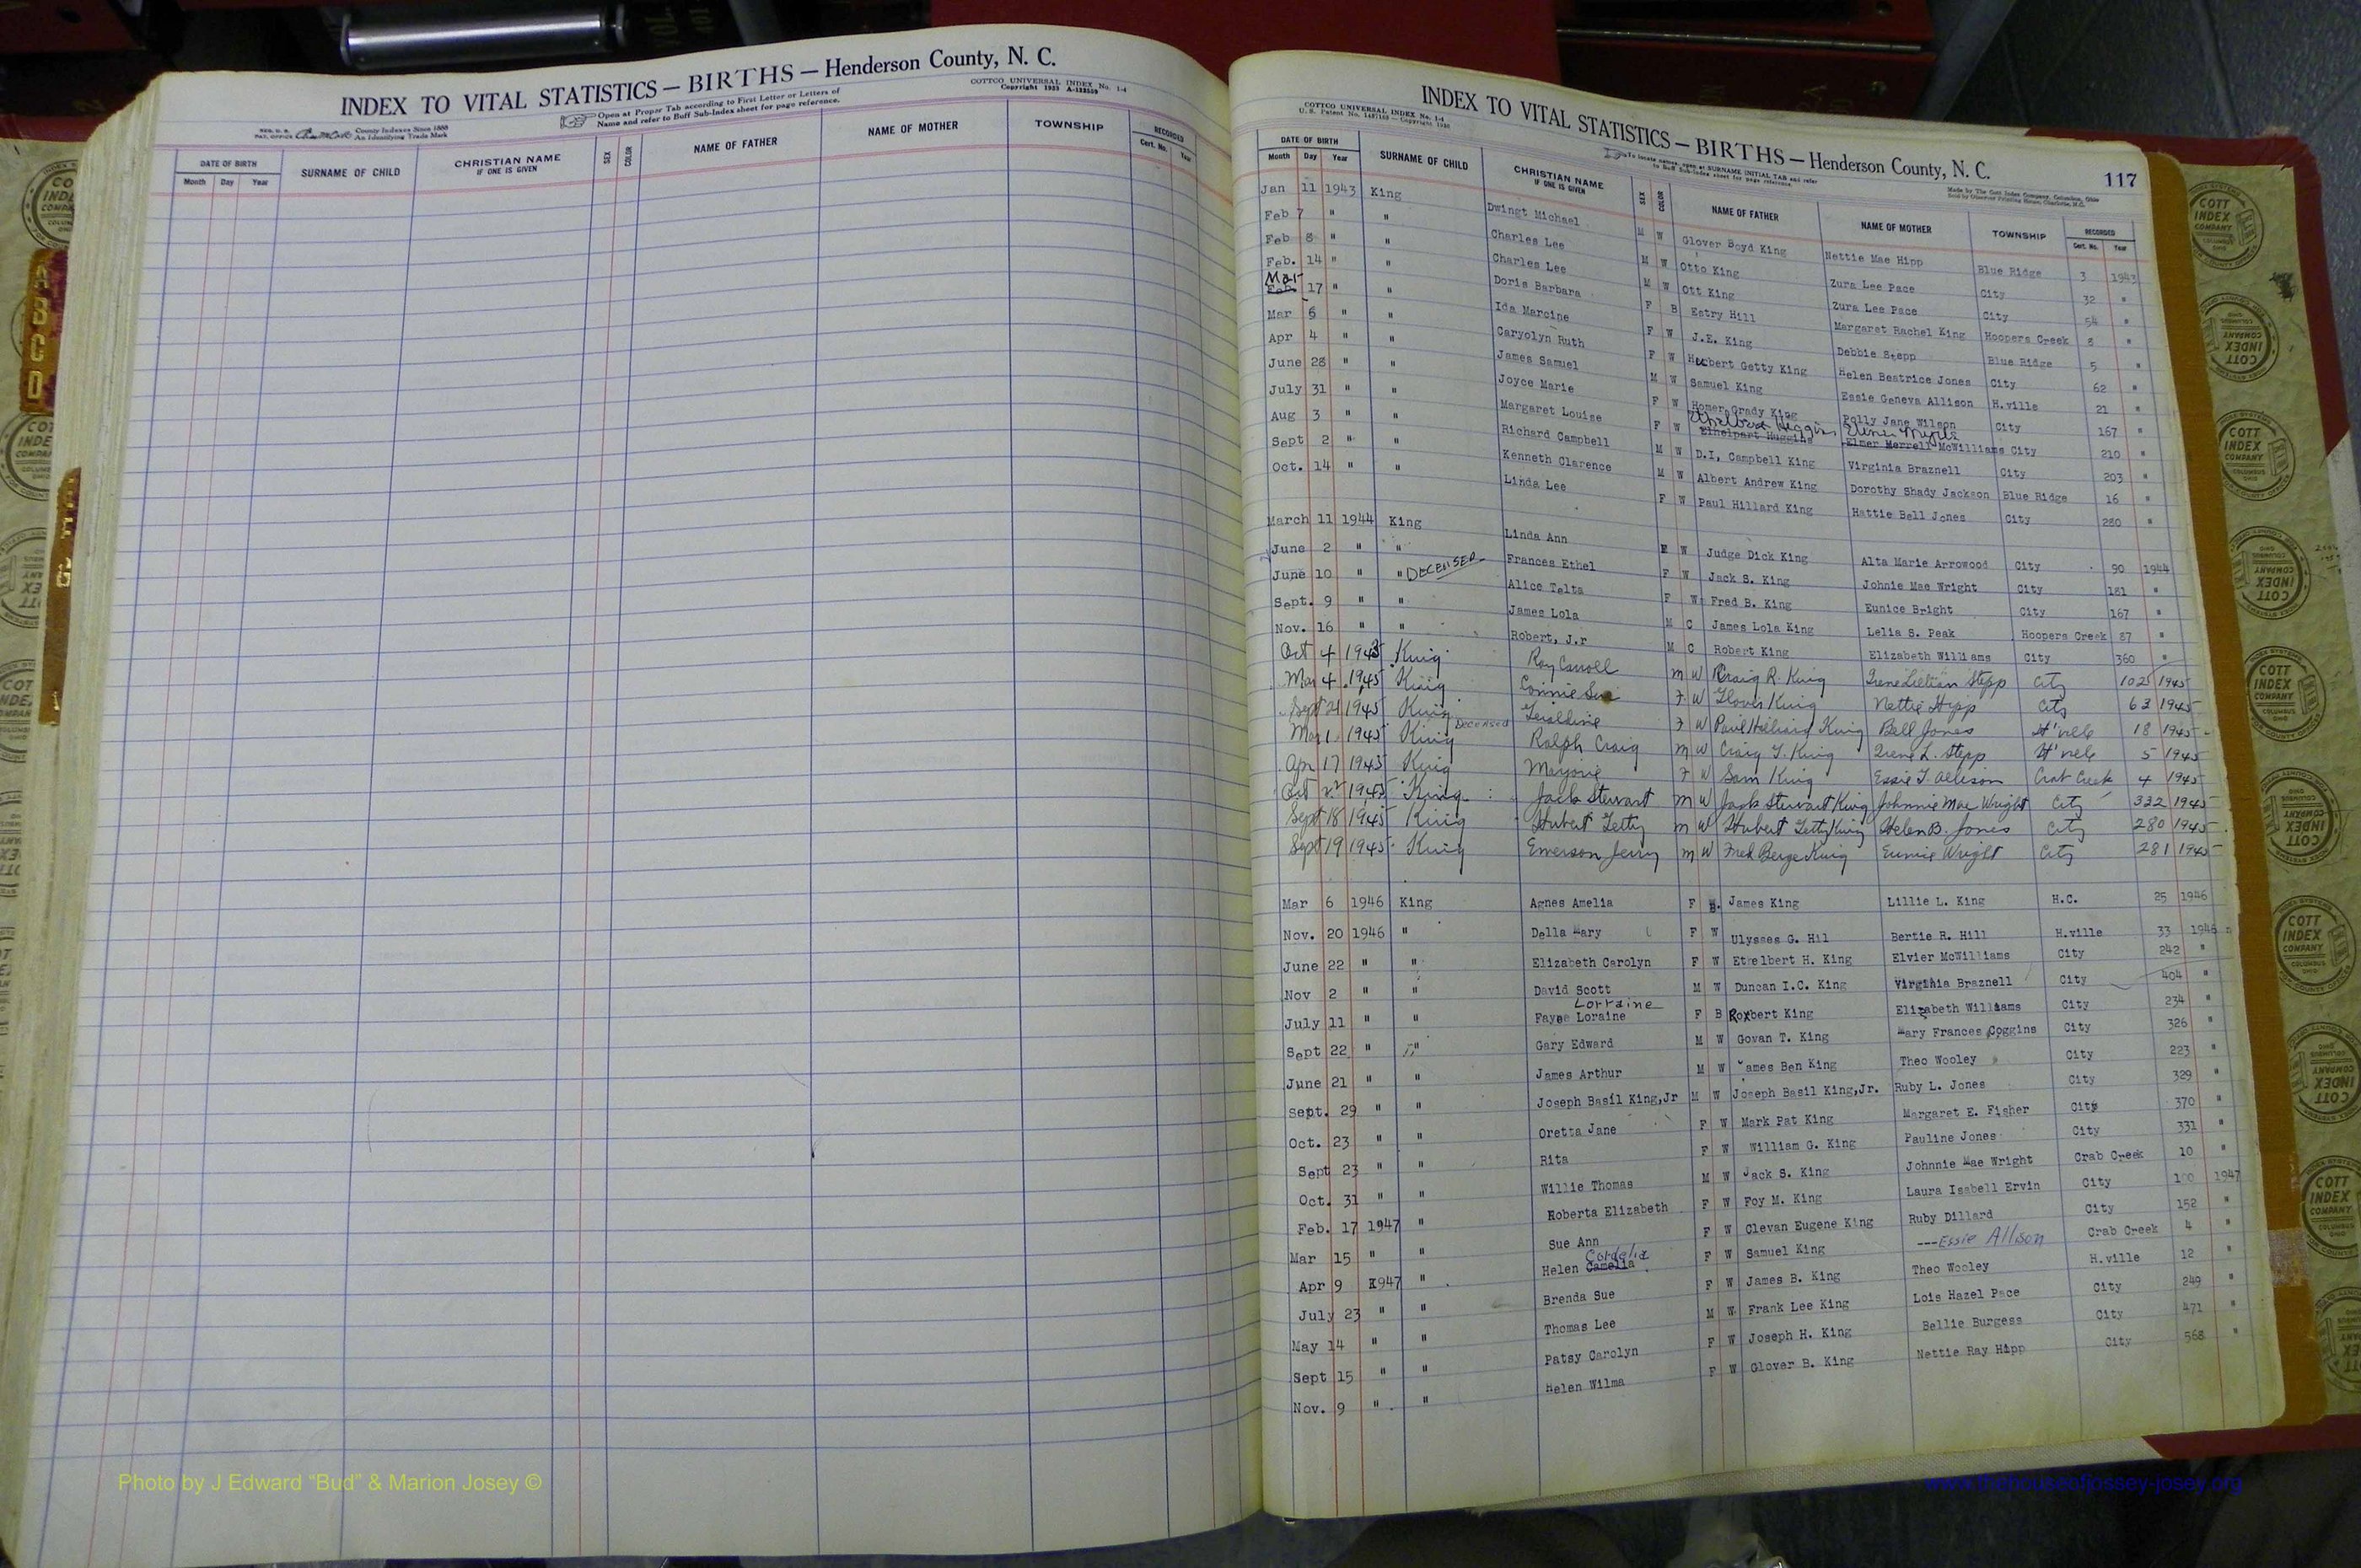 INDEX TO VITAL STATISTICS — BIRTHS — Henderson County, N. C.
COTTCO UNIVERSAL INDEX No. 1-4
Open at Proper Tab according to First Letter or Letters of
Name and refer to Buff Sub-Index sheet for page reference.
County Indexes Since 1888
An Identifying Trade Mark
DATE OF BIRTH SURNAME OF CHILD CHRISTIAN NAME IF ONE IS GIVEN SEX COLOR NAME OF FATHER NAME OF MOTHER TOWNSHIP RECORDED
Month Day Year Cert. No. Year
INDEX TO VITAL STATISTICS — BIRTHS — Henderson County, N. C.
117
COTTCO UNIVERSAL INDEX No. 1-4
DATE OF BIRTH SURNAME OF CHILD CHRISTIAN NAME IF ONE IS GIVEN SEX COLOR NAME OF FATHER NAME OF MOTHER TOWNSHIP RECORDED
Month Day Year Cert. No. Year
Jan 11 1943 King Dwingt Michael M W Glover Boyd King Nettie Mae Hipp Blue Ridge 3 1943
Feb 7 " " Charles Lee M W Otto King Zura Lee Pace City 32 "
Feb 8 " " Charles Lee M W Ott King Zura Lee Pace City 54 "
Feb. 14 " " Doris Barbara F B Estry Hill Margaret Rachel King Hoopers Creek 8 "
Mar
Feb. 17 " " Ida Marcine F W J.E. King Debbie Stepp Blue Ridge 5 "
Mar 6 " " Caryolyn Ruth F W Hubert Getty King Helen Beatrice Jones City 62 "
Apr 4 " " James Samuel M W Samuel King Essie Geneva Allison H.ville 21 "
June 28 " " Joyce Marie F W Homer Grady King Polly Jane Wilson City 167 "
July 31 " " Margaret Louise F W Ethelpert Huggins Elmer Merrell McWilliams City 210 "
Aug 3 " " Richard Campbell M W D.I, Campbell King Virginia Braznell City 203 "
Sept 2 " " Kenneth Clarence M W Albert Andrew King Dorothy Shady Jackson Blue Ridge 16 "
Oct. 14 " " Linda Lee F W Paul Hillard King Hattie Bell Jones City 280 "
March 11 1944 King Linda Ann F W Judge Dick King Alta Marie Arrowood City 90 1944
June 2 " " Frances Ethel F W Jack S. King Johnie Mae Wright City 181 "
June 10 " " DECEASED Alice Telta F W Fred B. King Eunice Bright City 167 "
Sept. 9 " " James Lola M C James Lola King Lelia S. Peak Hoopers Creek 87 "
Nov. 16 " " Robert, J.r M C Robert King Elizabeth Williams City 360 "
Oct 4 1943 King Roy Carroll M W Craig R. King Irene Lillian Stepp City 102 1945
Mar 4 1945 King Connie Sue F W Glover King Nettie Hipp City 63 1945
Sept 21 1945 King Deceased Geraldine F W Paul Hilliard King Bell Jones H'ville 18 1945
Mar 1 1945 King Ralph Craig M W Craig T. King Irene L. Stepp H'ville 5 1945
Apr 17 1945 King Marjorie F W Sam King Essie T. Allison Crab Creek 4 1945
Oct 22 1945 King Jack Stewart M W Jack Stewart King Johnnie Mae Wright City 332 1945
Sept 18 1945 King Hubert Getty M W Hubert Getty King Helen B. Jones City 280 1945
Sept 19 1945 King Emerson Jerry M W Fred Berge King Eunice Wright City 281 1945
Mar 6 1946 King Agnes Amelia F B. James King Lillie L. King H.C. 25 1946
Nov. 20 1946 " Della Mary F W Ulysses G. Hil Bertie R. Hill H.ville 33 1946
June 22 " " Elizabeth Carolyn F W Ethelbert H. King Elvier McWilliams City 242 "
Nov 2 " " David Scott M W Duncan I.C. King Virginia Braznell City 404 "
Lorraine
July 11 " " Faye Loraine F B Robert King Elizabeth Williams City 234 "
Sept 22 " " Gary Edward M W Govan T. King Mary Frances Coggins City 326 "
June 21 " " James Arthur M W James Ben King Theo Wooley City 223 "
Sept. 29 " " Joseph Basil King,Jr M W Joseph Basil King,Jr. Ruby L. Jones City 329 "
Oct. 23 " " Oretta Jane F W Mark Pat King Margaret E. Fisher City 370 "
Sept 23 " " Rita F W William G. King Pauline Jones City 331 "
Oct. 31 " " Willie Thomas M W Jack S. King Johnnie Mae Wright Crab Creek 10 "
Feb. 17 1947 " Roberta Elizabeth F W Foy M. King Laura Isabell Ervin City 100 1947
Mar 15 " " Sue Ann F W Clevan Eugene King Ruby Dillard City 152 "
Cordelia
Apr 9 1947 " Helen Camelia F W Samuel King ---Essie Allison Crab Creek 4 "
July 23 " " Brenda Sue F W James B. King Theo Wooley H.ville 12 "
May 14 " " Thomas Lee M W Frank Lee King Lois Hazel Pace City 249 "
Sept 15 " " Patsy Carolyn F W Joseph H. King Bellie Burgess City 471 "
Nov. 9 " " Helen Wilma F W Glover B. King Nettie Ray Hipp City 568 "
Photo by J Edward "Bud" & Marion Josey ©
www.thehouseofjossey-josey.org